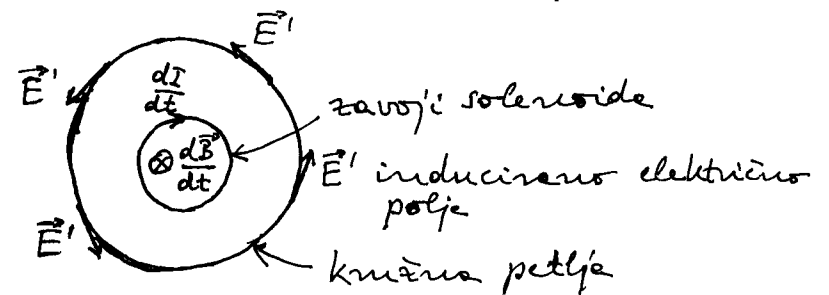 E⃗'
E⃗'
dI/dt
zavoji solenoida
⊗ dB⃗/dt
E⃗' inducirano električno
polje
E⃗'
kružna petlja